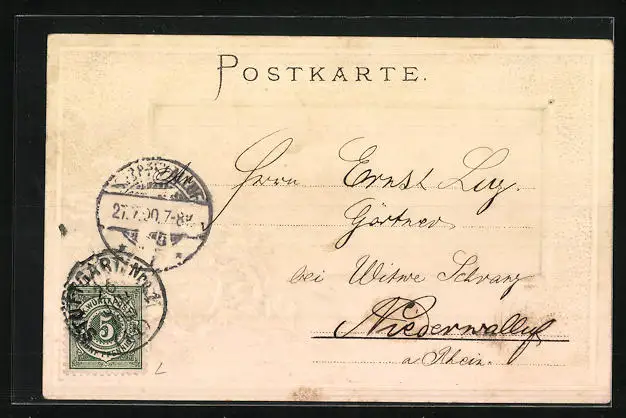 POSTKARTE.
Herrn Ernst Luz.
Gärtner
bei Witwe Schwarz
Niederwalluf
a. Rhein.
27.7.00. 7-8V.
STUTTGART No. 1
WÜRTTEMBERG
5